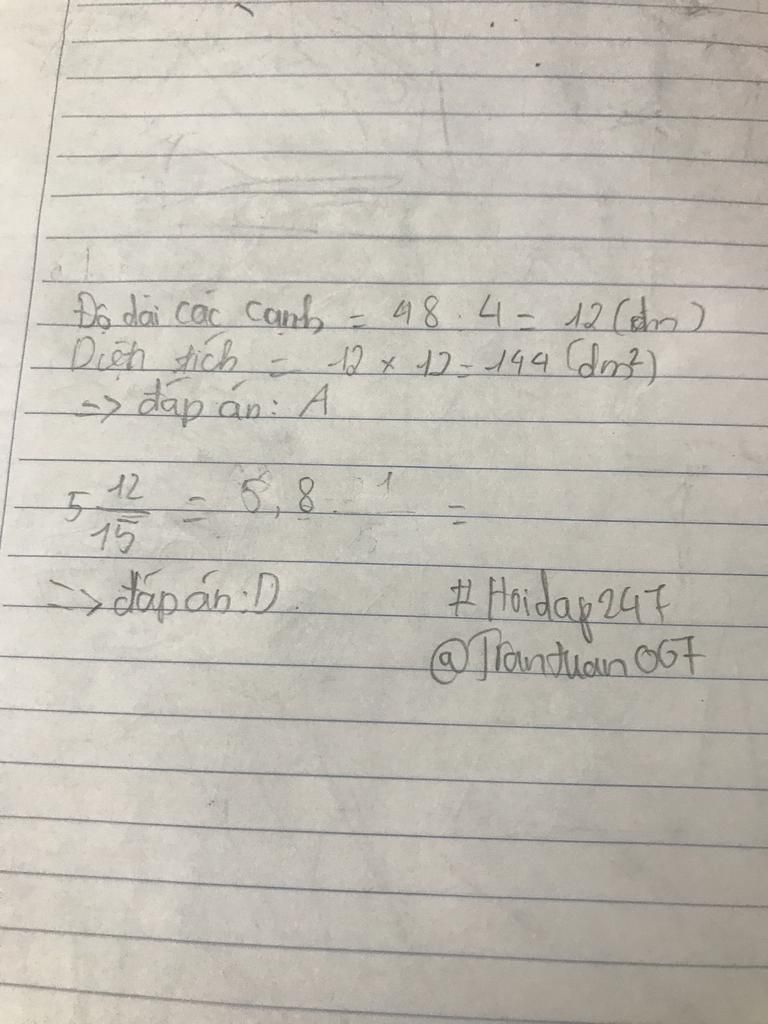 Độ dài các cạnh = 48 . 4 = 12 (dm)
Diện tích = 12 x 12 = 144 (dm²)
=> đáp án : A
5 12/15 = 5,8 1 =
=> đáp án : D.
# Hoidap247
@Trantuan067